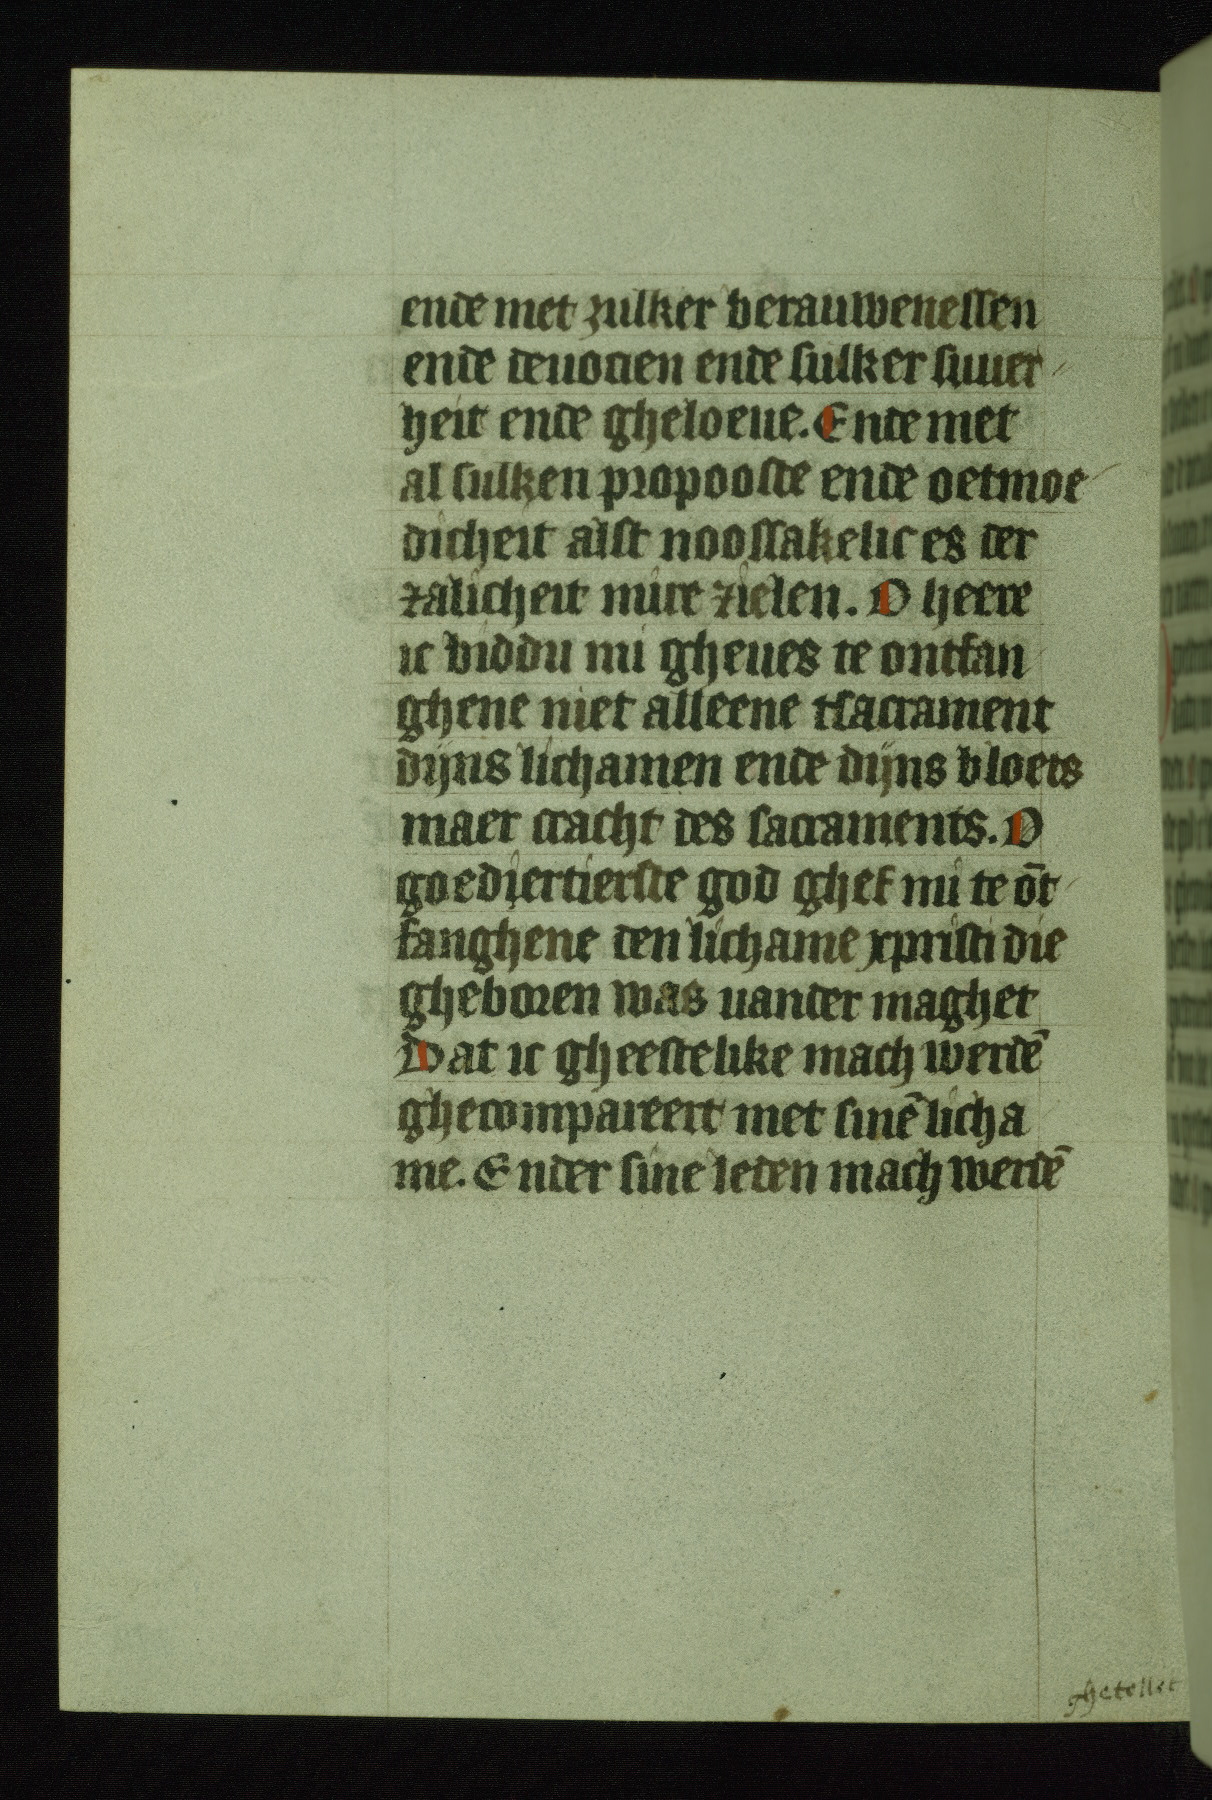 ende met zulker berauwenessen
ende deuocien ende sulker suuer
heit ende gheloeue. Ende met
al sulken propooste ende oetmoe
dicheit alst noossakelic es der
zalicheit mire zielen. O heere
ic biddu mi gheues te ontfan
ghene niet alleene tsacrament
dijns lichamen ende dijns bloets
maer cracht des sacraments. O
goediertierste god ghef mi te ōt
fanghene den lichame xpristi die
gheboren was uander maghet
Dat ic gheestelike mach werdē
ghecompareert met sinē licha
me. Ender sine leden mach werdē
ghetellet